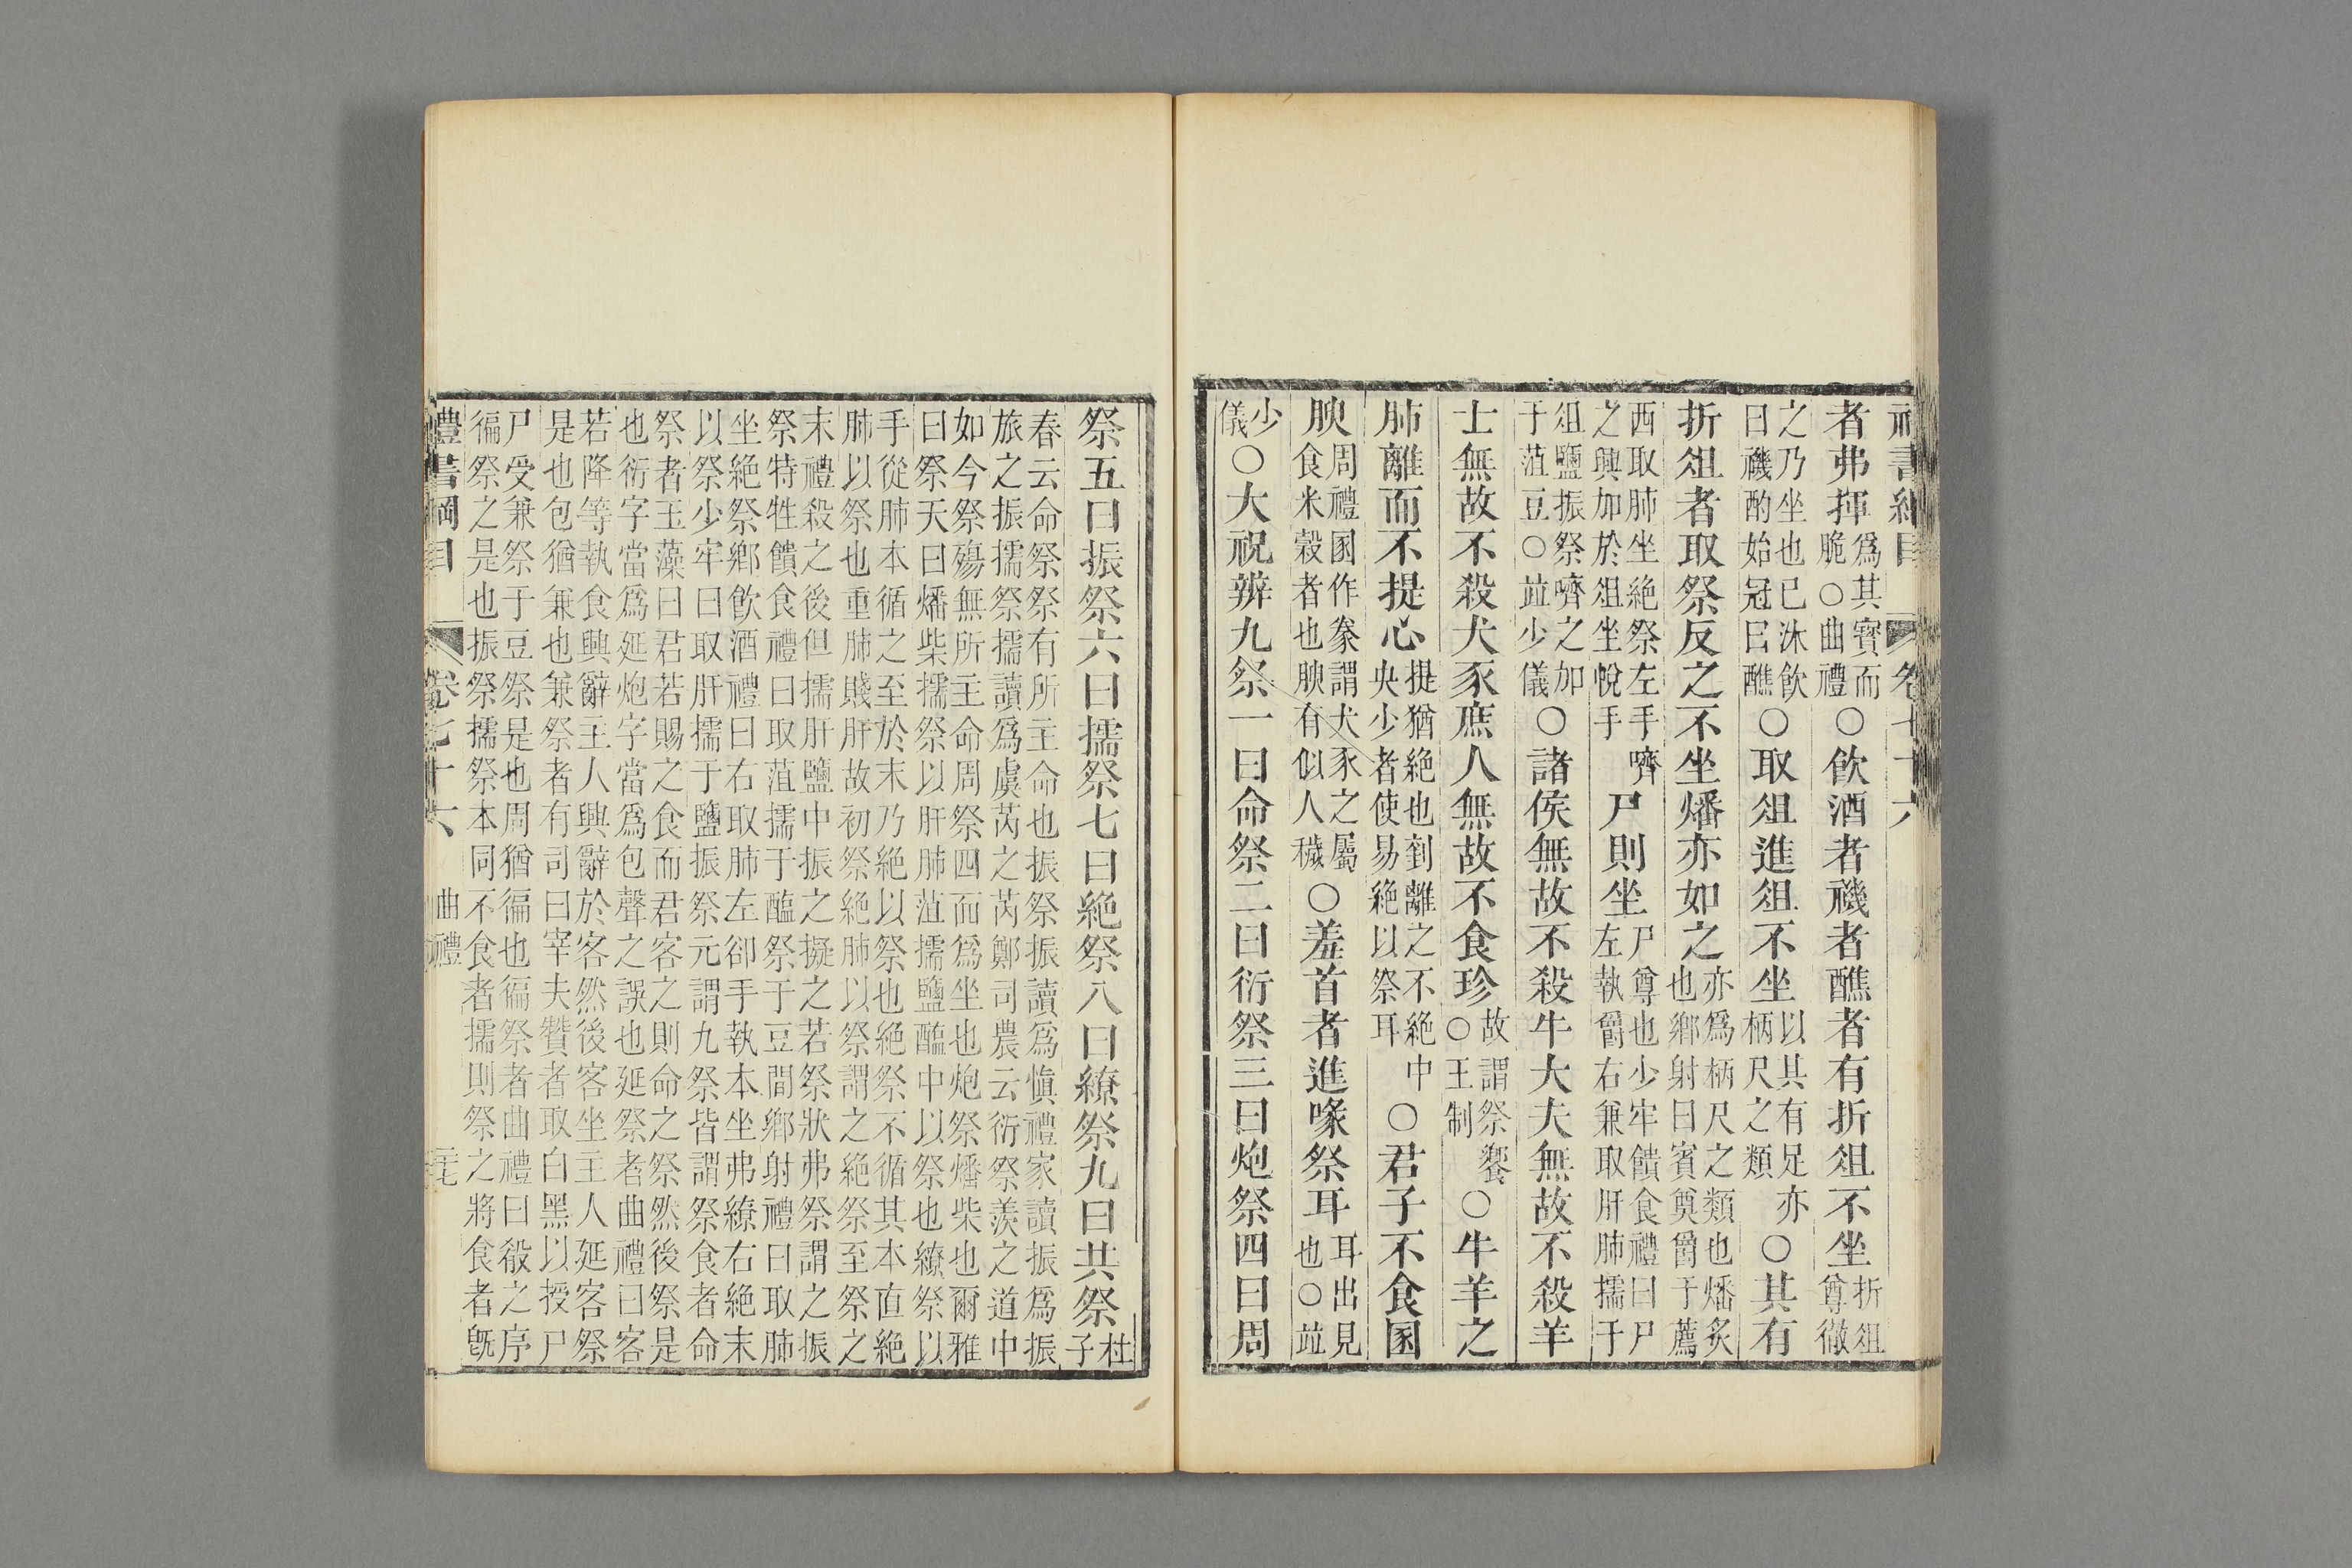 禮書綱目 卷七十六
者弗揮爲其寶而脆○曲禮○飲酒者禨者醮者有折俎不坐折俎尊徹
之乃坐也已沐飲曰禨酌始冠曰醮○取俎進俎不坐以其有足亦柄尺之類○其有
折俎者取祭反之不坐燔亦如之亦爲柄尺之類也燔炙也鄉射曰賓奠爵于薦
西取肺坐絕祭左手嚌之興加於俎坐帨手尸則坐尸尊也少牢饋食禮曰尸左執爵右兼取肝肺擩于
俎鹽振祭嚌之加于菹豆○並少儀○諸侯無故不殺牛大夫無故不殺羊
士無故不殺犬豕庶人無故不食珍故謂祭饗○王制○牛羊之
肺離而不提心提猶絕也刲離之不絕中央少者使易絕以祭耳○君子不食圂
腴周禮圂作豢謂犬豕之屬食米穀者也腴有似人穢○羞首者進喙祭耳耳出見也○並
少儀○大祝辨九祭一曰命祭二曰衍祭三曰炮祭四曰周
祭五曰振祭六曰擩祭七曰絕祭八曰繚祭九曰共祭杜子
春云命祭祭有所主命也振祭振讀爲愼禮家讀振爲振
旅之振擩祭擩讀爲虞芮之芮鄭司農云衍祭羨之道中
如今祭殤無所主命周祭四面爲坐也炮祭燔柴也爾雅
曰祭天曰燔柴擩祭以肝肺菹擩鹽醢中以祭也繚祭以
手從肺本循之至於末乃絕以祭也絕祭不循其本直絕
肺以祭也重肺賤肝故初祭絕肺以祭謂之絕祭至祭之
末禮殺之後但擩肝鹽中振之擬之若祭狀弗祭謂之振
祭特牲饋食禮曰取菹擩于醢祭于豆間鄉射禮曰取肺
坐絕祭鄉飲酒禮曰右取肺左卻手執本坐弗繚右絕末
以祭少牢曰取肝擩于鹽振祭元謂九祭皆謂祭食者命
祭者玉藻曰君若賜之食而君客之則命之祭然後祭是
也衍字當爲延炮字當爲包聲之誤也延祭者曲禮曰客
若降等執食興辭主人興辭於客然後客坐主人延客祭
是也包猶兼也兼祭者有司曰宰夫贊者取白黑以授尸
尸受兼祭于豆祭是也周猶徧也徧祭者曲禮曰殽之序
徧祭之是也振祭擩祭本同不食者擩則祭之將食者旣
禮書綱目 卷七十六 曲禮